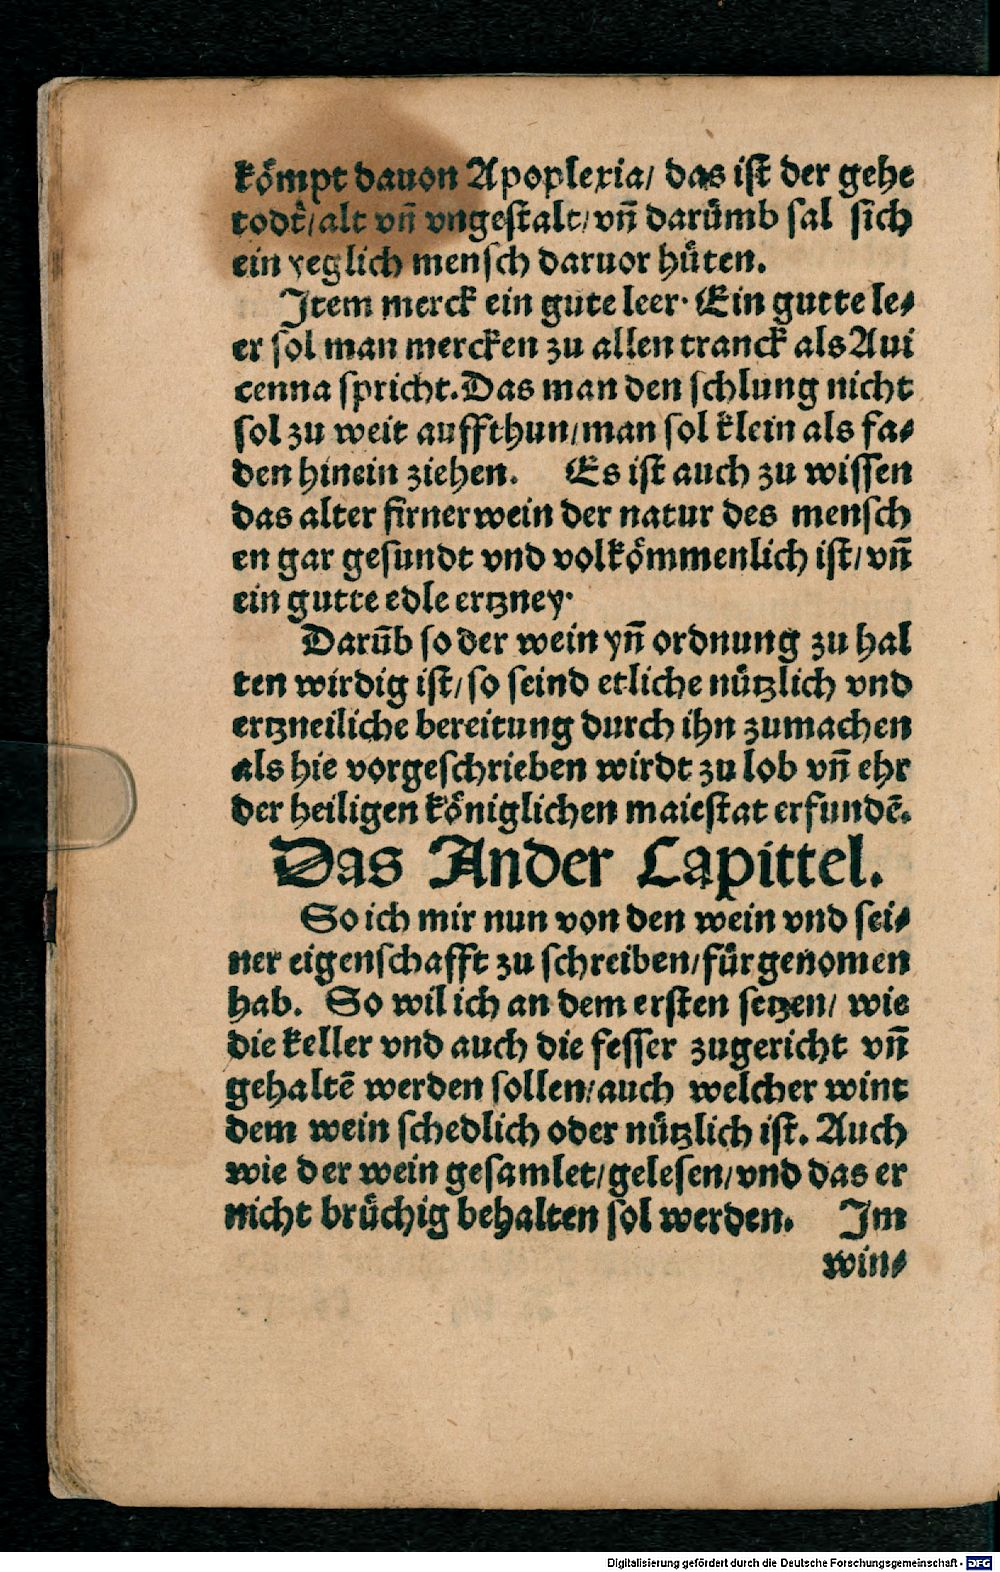 kömpt dauon Apoplexia/ das ist der gehe
todt/ alt vn̄ vngestalt/ vn̄ darümb sal sich
ein yeglich mensch daruor hüten.
Item merck ein gute leer. Ein gutte le⸗
er sol man mercken zu allen tranck als Aui
cenna spricht. Das man den schlung nicht
sol zu weit auffthun/ man sol klein als fa⸗
den hinein ziehen. Es ist auch zu wissen
das alter firner wein der natur des mensch
en gar gesundt vnd volkömmenlich ist/ vn̄
ein gutte edle ertzney.
Darūb so der wein yn̄ ordnung zu hal
ten wirdig ist/ so seind etliche nützlich vnd
ertzneiliche bereitung durch ihn zumachen
als hie vorgeschrieben wirdt zu lob vn̄ ehr
der heiligen königlichen maiestat erfundē.
Das Ander Capittel.
So ich mir nun von den wein vnd sei⸗
ner eigenschafft zu schreiben/ für genomen
hab. So wil ich an dem ersten setzen/ wie
die keller vnd auch die fesser zugericht vn̄
gehaltē werden sollen/ auch welcher wint
dem wein schedlich oder nützlich ist. Auch
wie der wein gesamlet/ gelesen/ vnd das er
nicht brüchig behalten sol werden. Im
win⸗
Digitalisierung gefördert durch die Deutsche Forschungsgemeinschaft - DFG